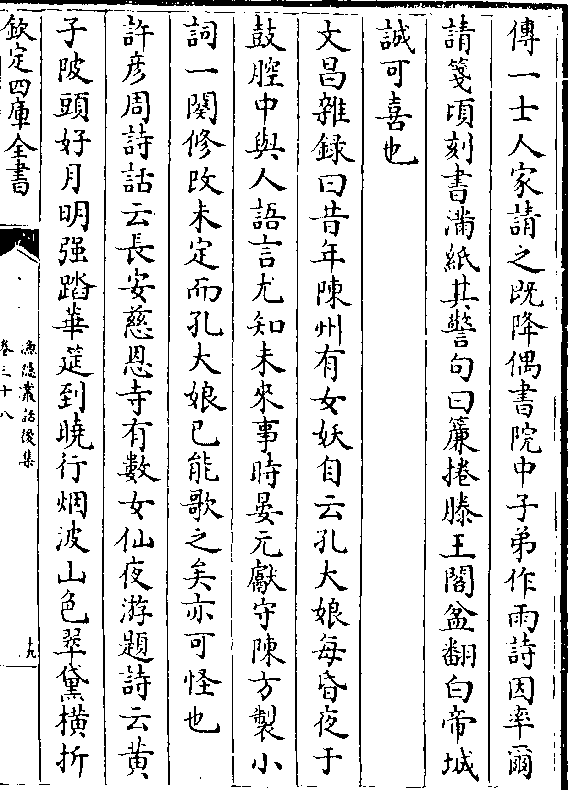 傳一士人家請之既降偶書院中子弟作雨詩因率爾
請箋頃刻書滿紙其警句曰簾捲滕王閣盆翻白帝城
誠可喜也
文昌雜録曰昔年陳州有女妖自云孔大娘每昏夜于
鼓腔中與人語言尤知未來事時晏元獻守陳方製小
詞一闋修改未定而孔大娘已能歌之矣亦可怪也
許彦周詩話云長安慈恩寺有數女仙夜游題詩云黄
子陂頭好月明强踏華筵到曉行烟波山色翠黛横折
欽定四庫全書
漁隠叢話後集
卷三十八
十九